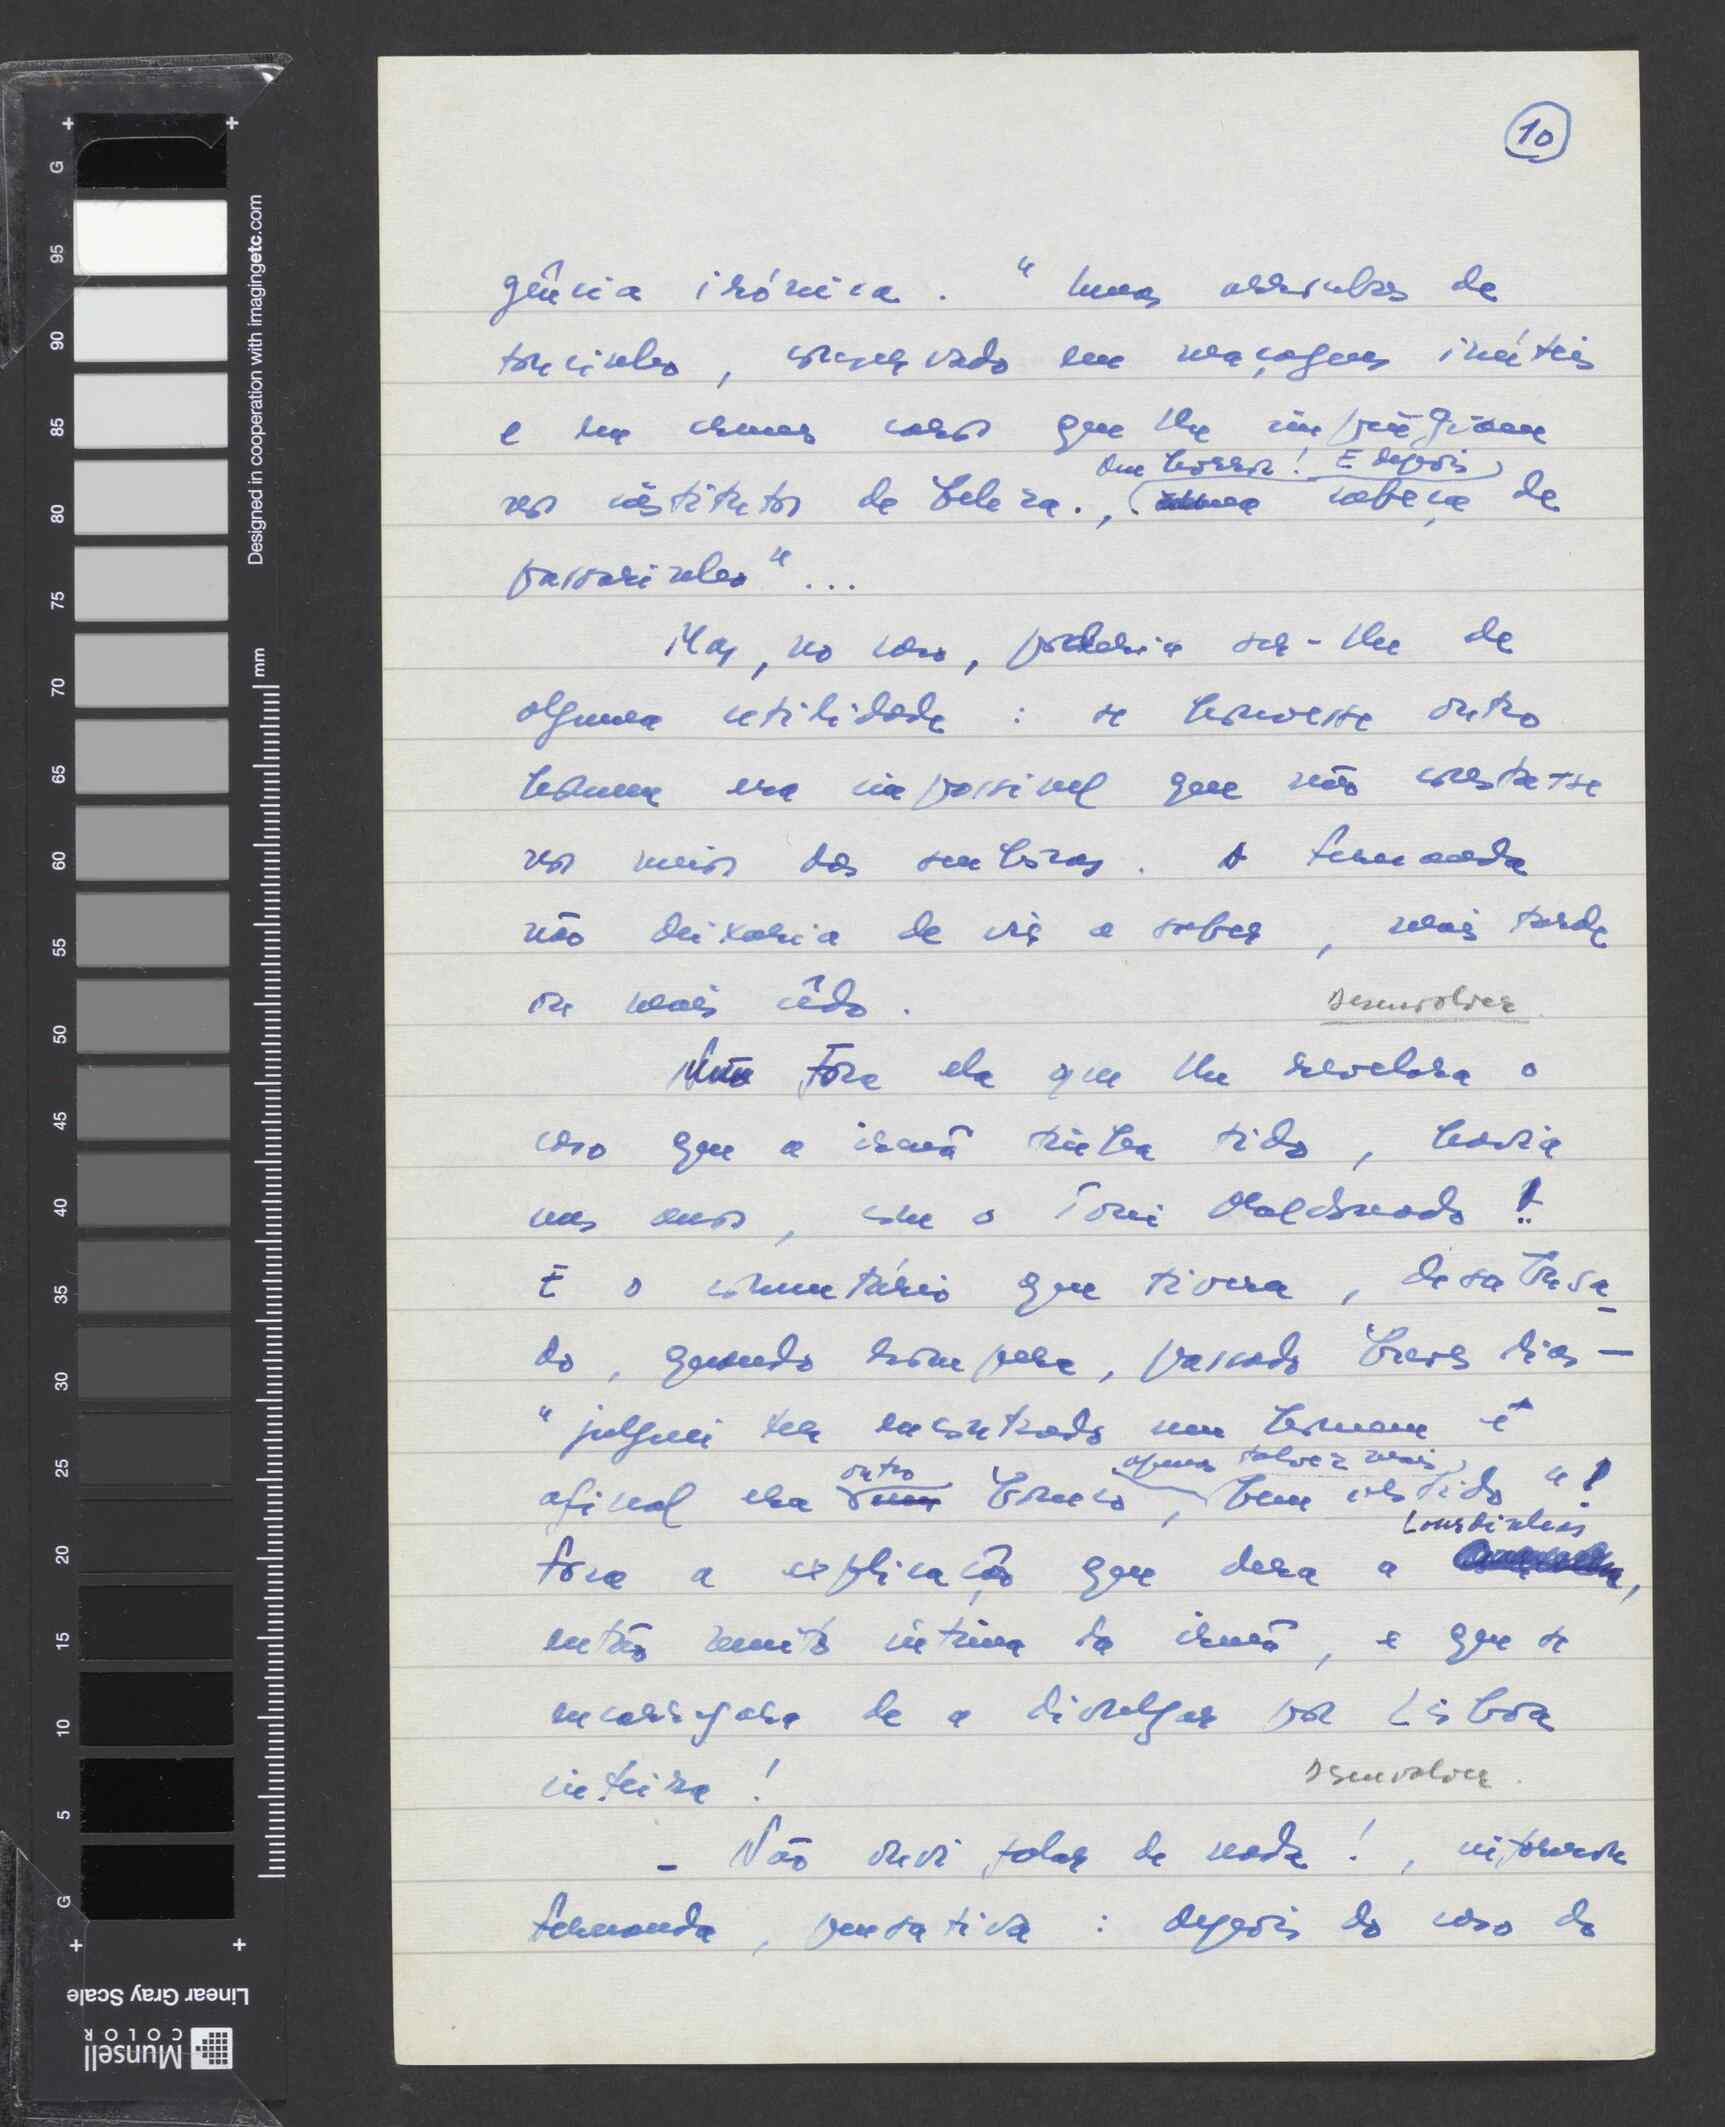 10
gência irónica. "Umas arrobas de
toucinho, conservado em maçagens inúteis
e em cremes caros que lhe impingiam
nos institutos de beleza., Que horror! E depois cabeça de
passarinho"...
Mas, no caso, poderia ser-lhe de
alguma utilidade: se houvesse outro
homem era impossivel que não constasse
no meio das senhoras. A Fernanda
não deixaria de vir a saber, mais tarde
ou mais cêdo. Desenvolver.
Não fora ela que lhe revelara o
caso que a irmã tinha tido, havia
uns anos, com o Toni Maldonado!
E o comentário que tivera, desabusa-
do, quando rompera, passado breves dias —
"julguei ter encontrado um homem e
afinal era outro boneco, apenas talvez mais bem vestido"!
fora a explicação que dera a Lourdinhas,
então muito intima da irmã, e que se
encarregara de a divulgar por Lisboa
inteira! Desenvolver.
- Não ouvi falar de nada!, informou
Fernanda, pensativa: depois do caso do
Designed in cooperation with imagingetc.com
mm
G 95 90 85 80 75 70 65 60 55 50 45 40 35 30 25 20 15 10 5 G
Linear Gray Scale
Munsell
COLOR